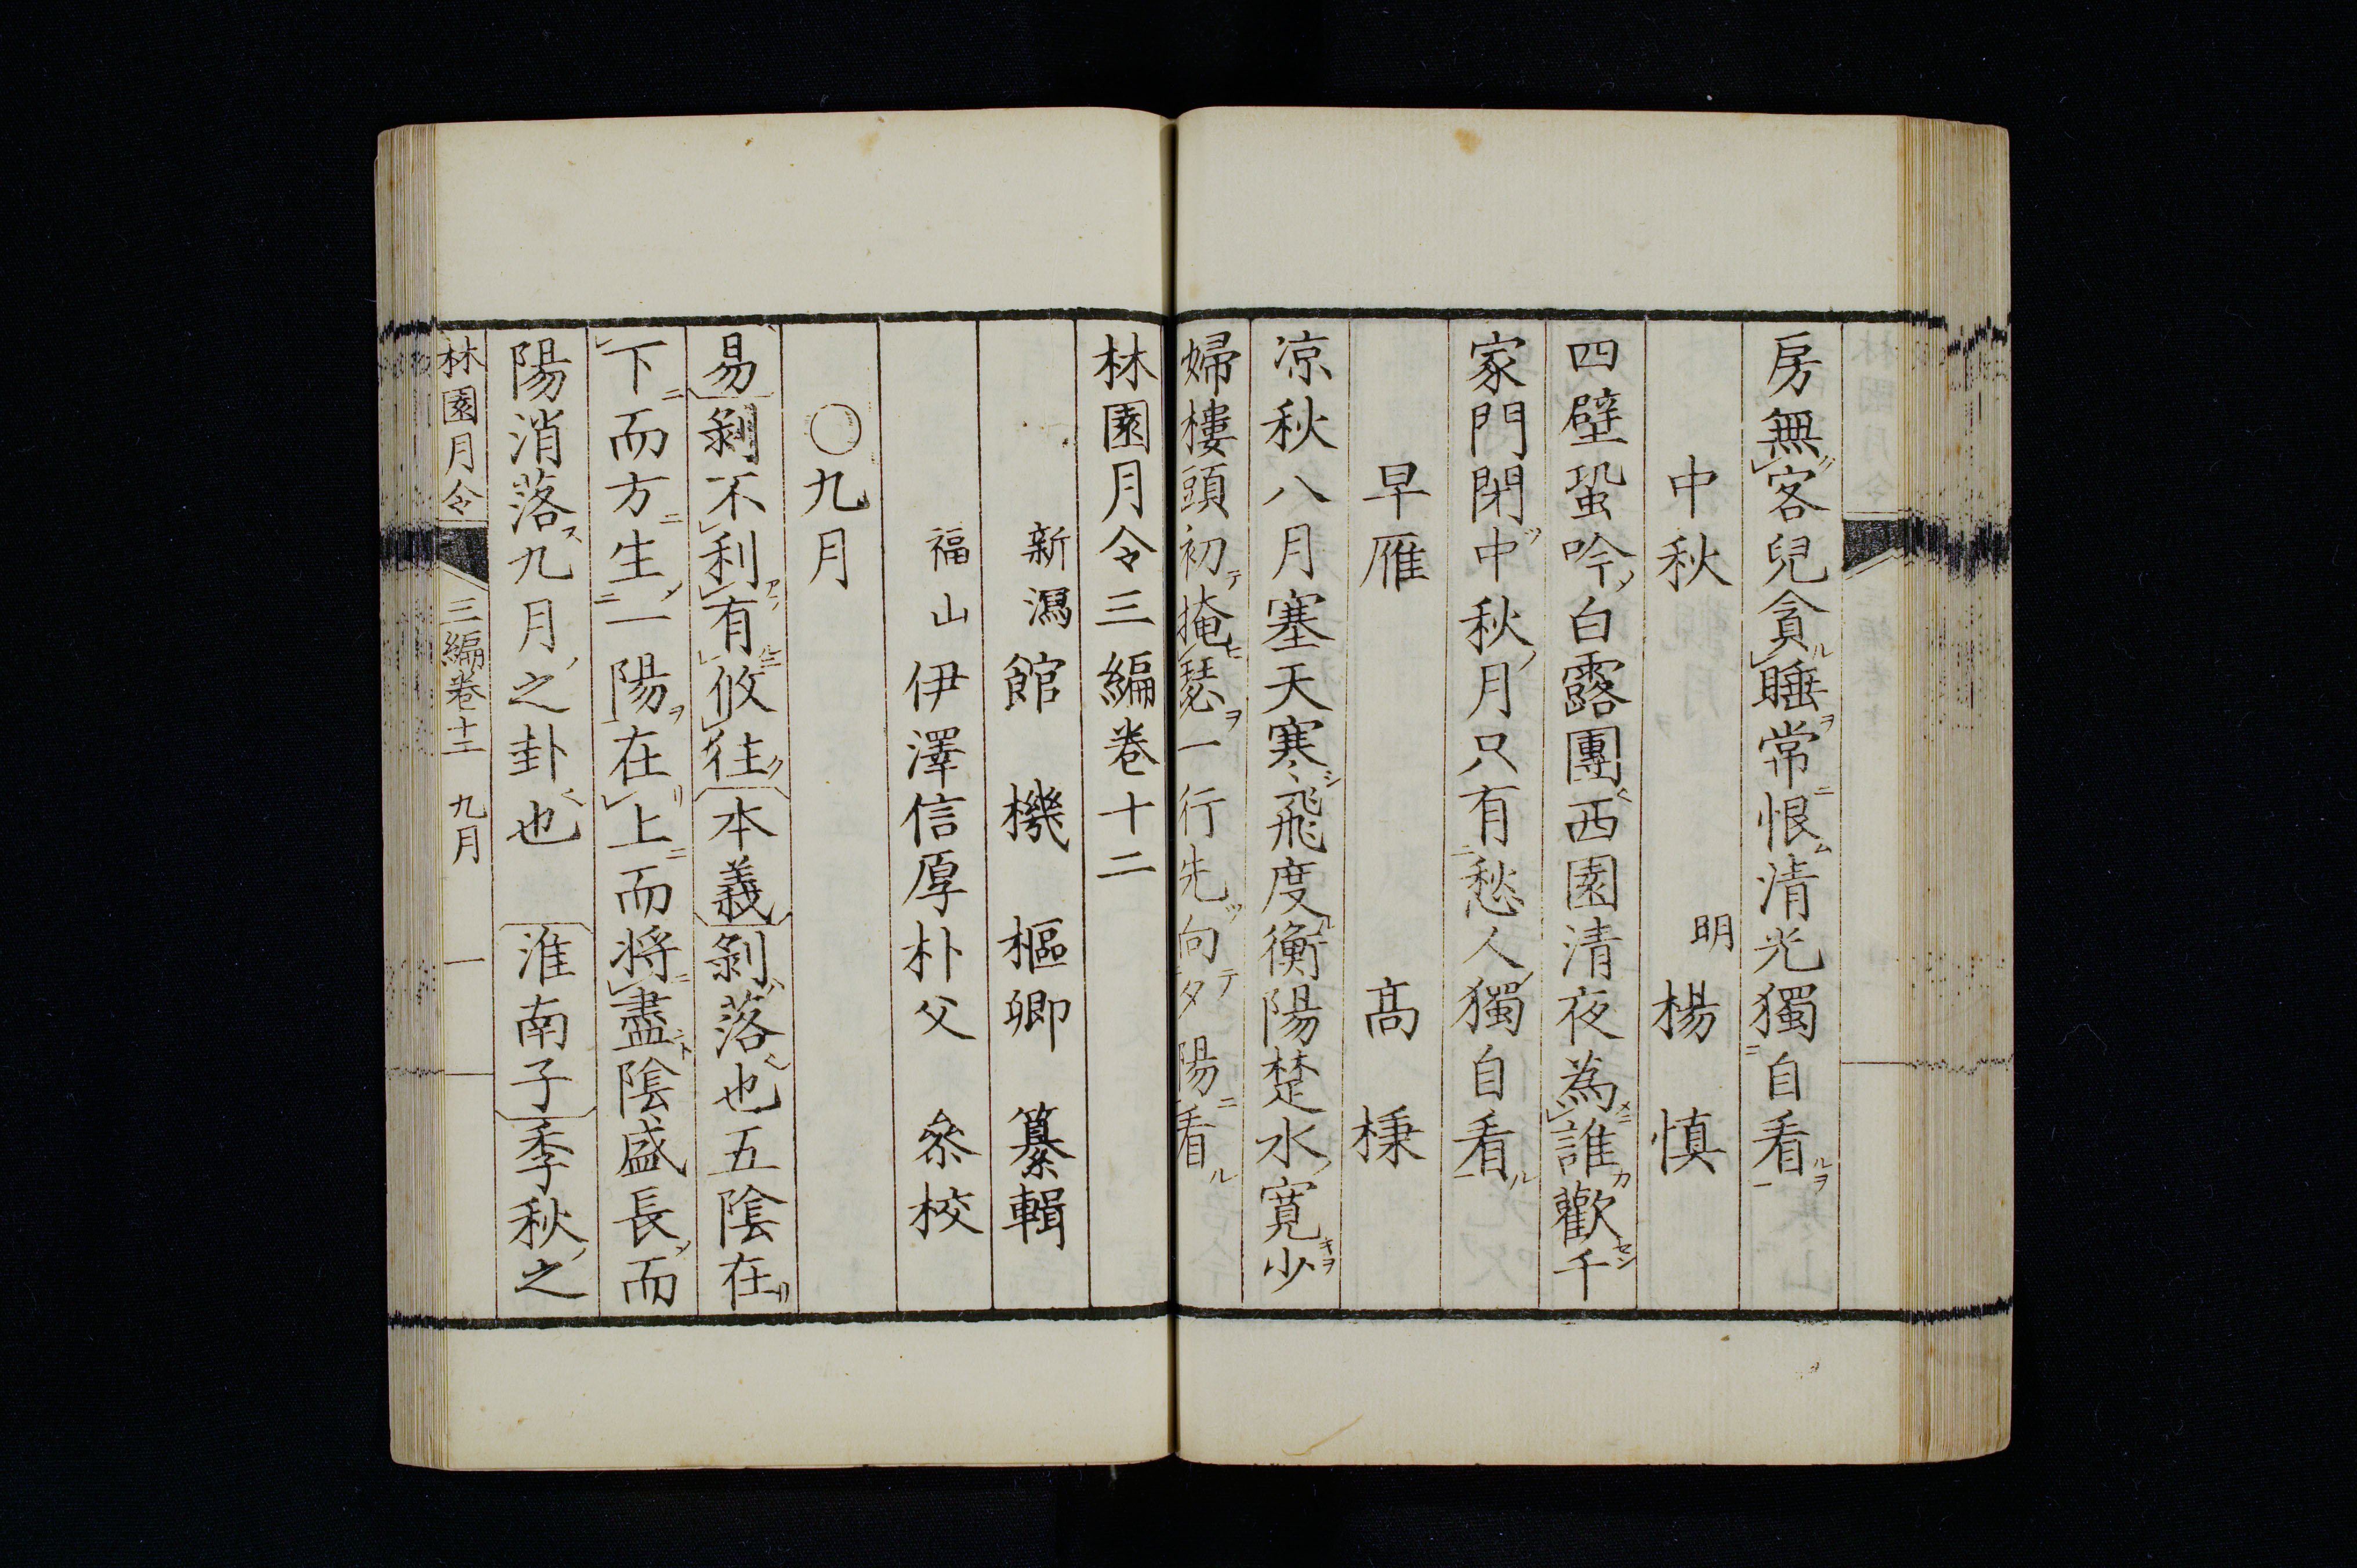 房無客兒貪睡常恨清光獨自看
中秋 明 楊慎
四壁蛩吟白露團西園清夜為誰歡千
家門閉中秋月只有愁人獨自看
早雁 高棅
凉秋八月塞天寒飛度衡陽楚水寛少
婦樓頭初掩瑟一行先向夕陽看
林園月令三編卷十二
新潟 館機樞卿 纂輯
福山 伊澤信厚朴父 叅校
○九月
易剝不利有攸往本義剝落也五陰在
下而方生一陽在上而将盡陰盛長而
陽消落九月之卦也 淮南子季秋之
林園月令 三編卷十二 九月 一